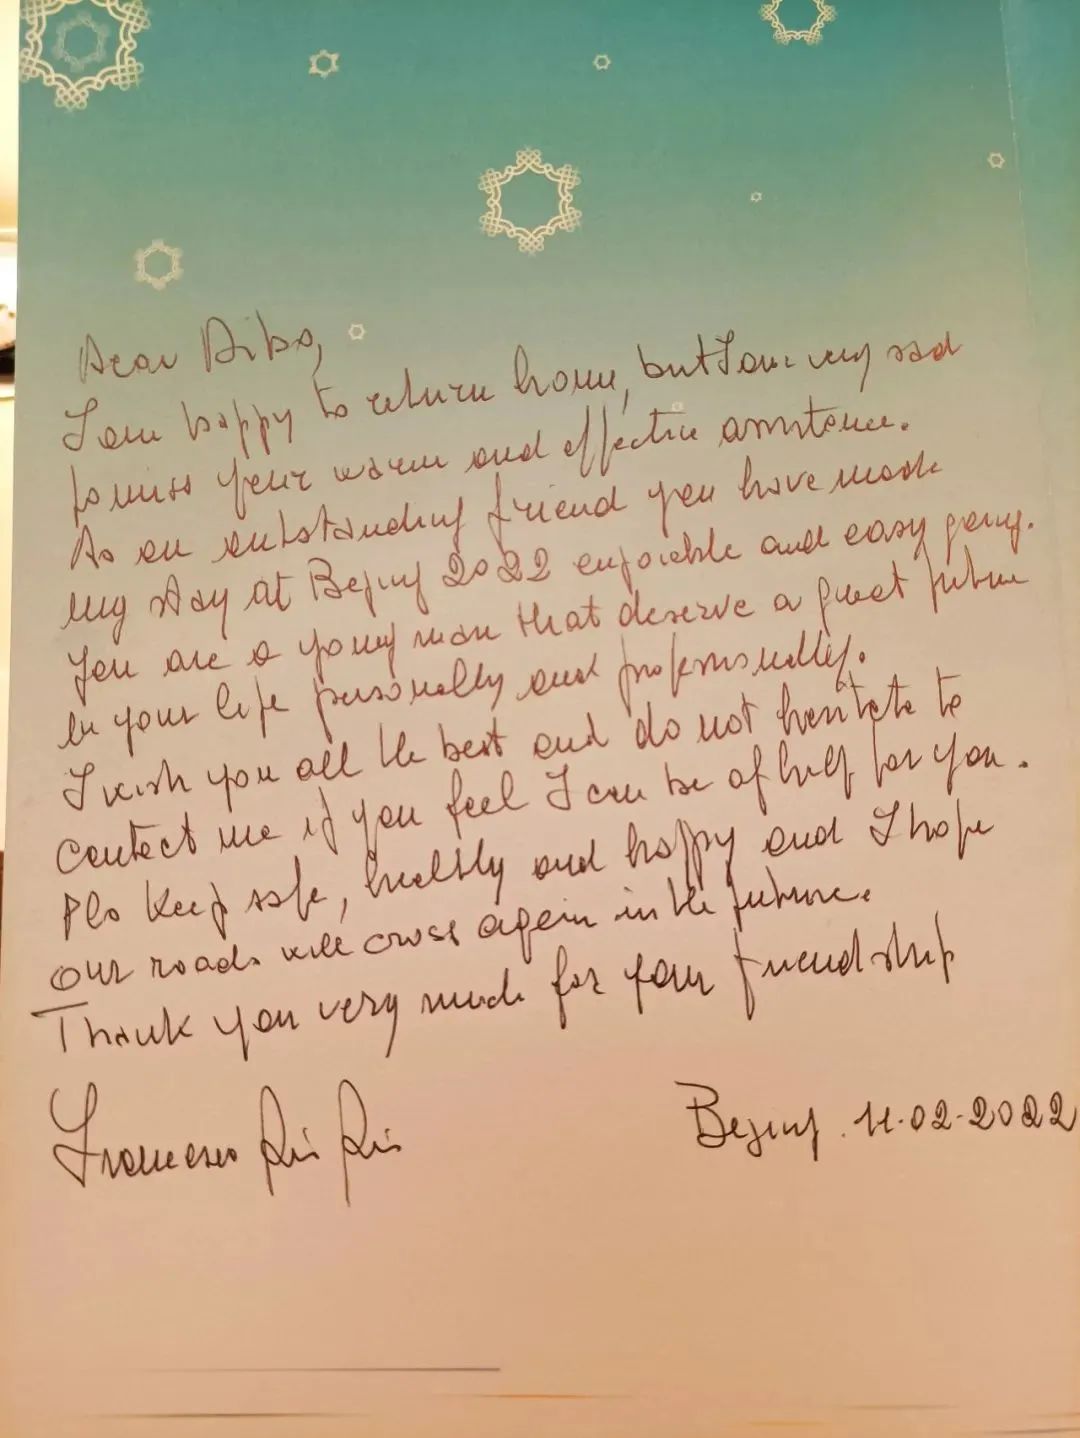 Dear
I am happy to return home, but I am very sad
to miss your warm and effective assistence.
As an outstanding friend you have made
my stay at Bejing 2022 enjoiable and easy going.
You are a young man that deserve a great future
in your life personally and professionally.
I wish you all the best and do not hesitate to
contact me if you feel I can be of help for you.
Pls keep safe, healthy and happy and I hope
our roads will cross again in the future.
Thank you very much for your friendship
Francesco
Bejing. 11.02.2022